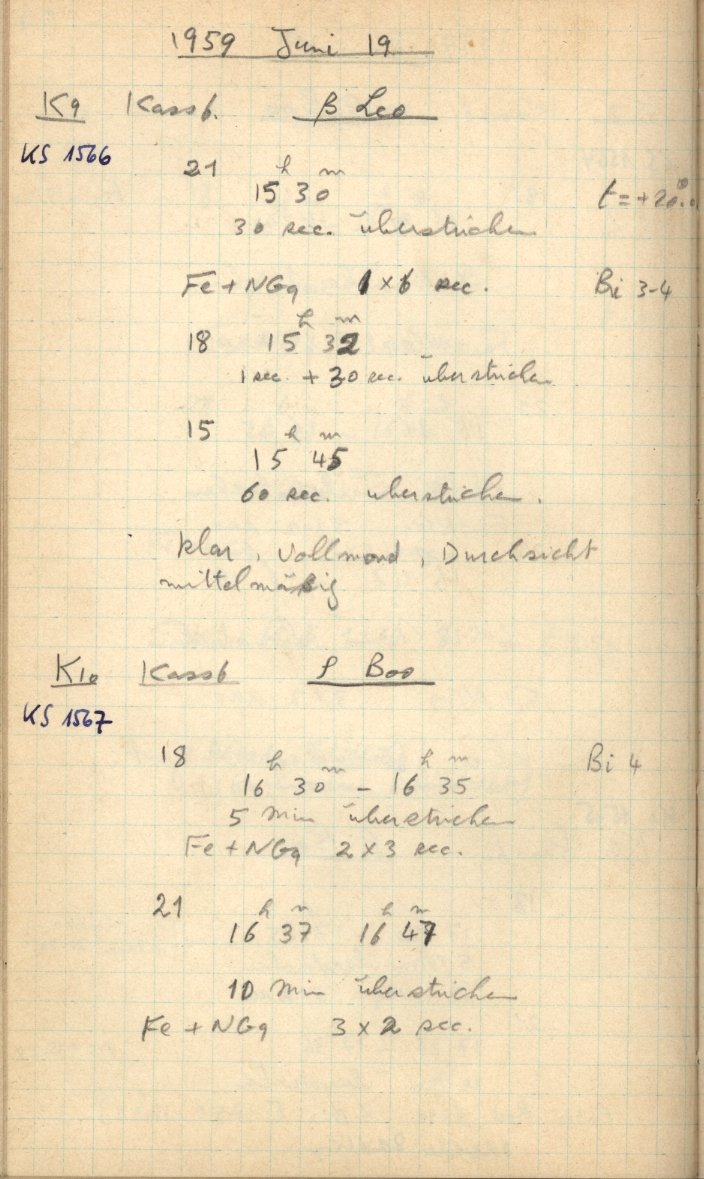 1959 Juni 19
K9 Kassb. β Leo
KS 1566
21 15h 30m t = +20.0
30 sec. überstrichen
Fe + NGq 1 × 6 sec. Bi 3-4
18 15h 32m
1 sec. + 30 sec. überstrichen
15
15h 45m
60 sec. überstrichen.
klar, Vollmond, Durchsicht
mittelmäßig
K10 Kassb ρ Boo
KS 1567
18 16h 30m – 16h 35m Bi 4
5 Min überstrichen
Fe + NGq 2 × 3 sec.
21 16h 37m 16h 47m
10 Min überstrichen
Fe + NGq 3 × 2 sec.